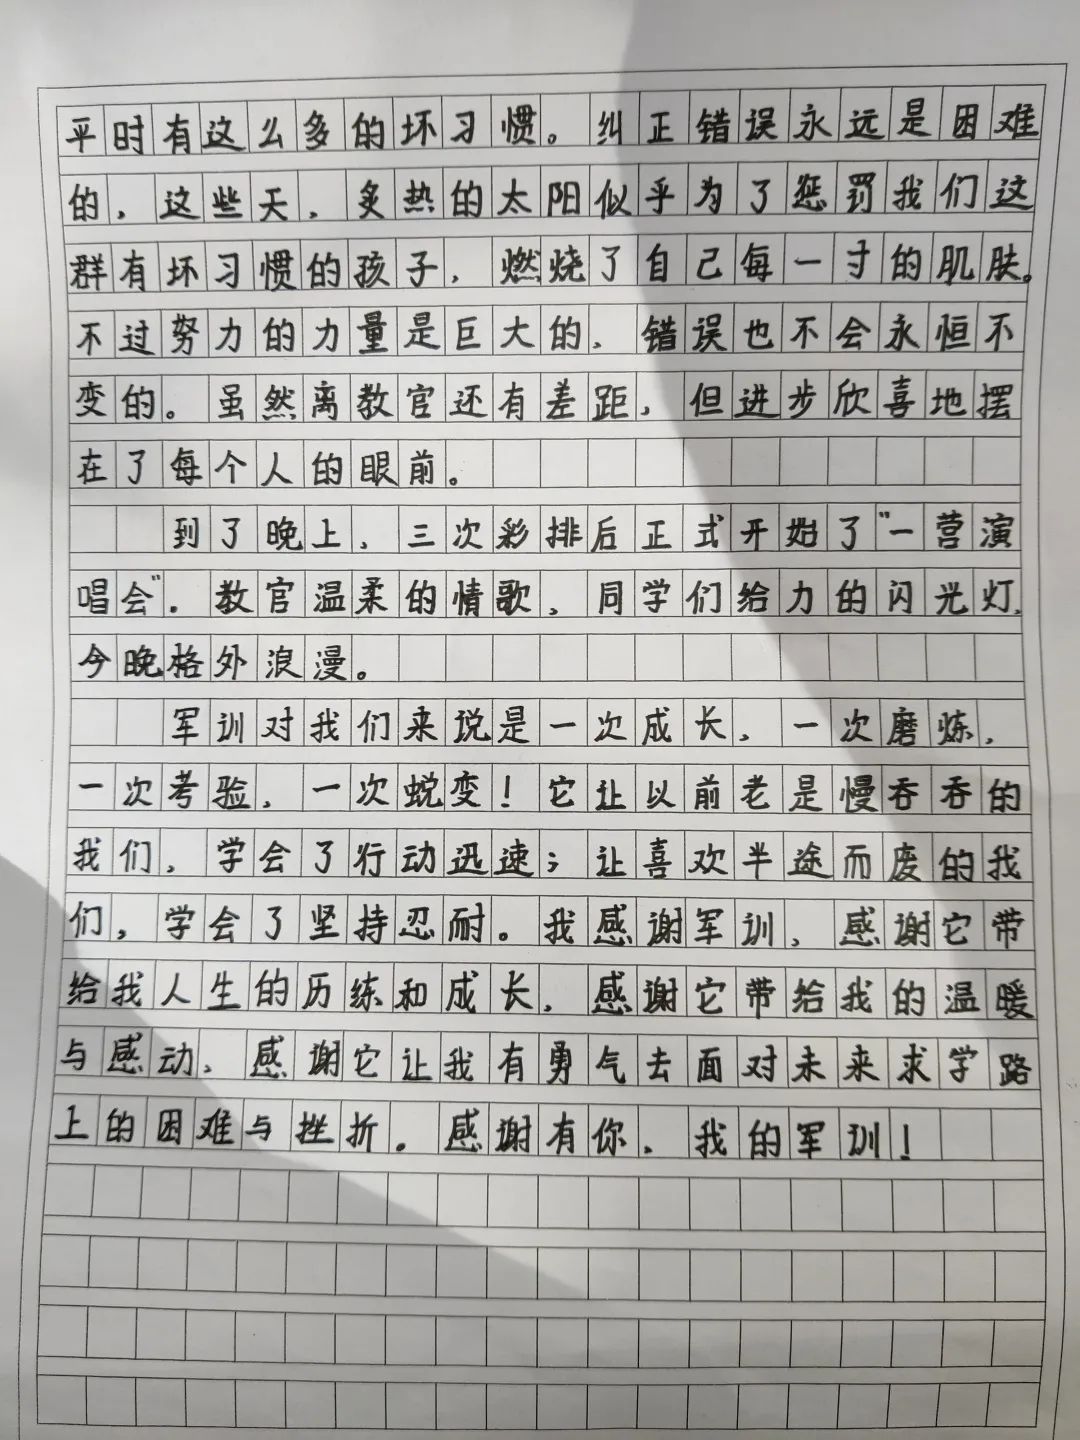 平时有这么多的坏习惯。纠正错误永远是困难
的，这些天，炙热的太阳似乎为了惩罚我们这
群有坏习惯的孩子，燃烧了自己每一寸的肌肤。
不过努力的力量是巨大的，错误也不会永恒不
变的。虽然离教官还有差距，但进步欣喜地摆
在了每个人的眼前。
到了晚上，三次彩排后正式开始了“一营演
唱会”。教官温柔的情歌，同学们给力的闪光灯，
今晚格外浪漫。
军训对我们来说是一次成长，一次磨炼，
一次考验，一次蜕变！它让以前老是慢吞吞的
我们，学会了行动迅速；让喜欢半途而废的我
们，学会了坚持忍耐。我感谢军训，感谢它带
给我人生的历练和成长，感谢它带给我的温暖
与感动，感谢它让我有勇气去面对未来求学路
上的困难与挫折。感谢有你，我的军训！